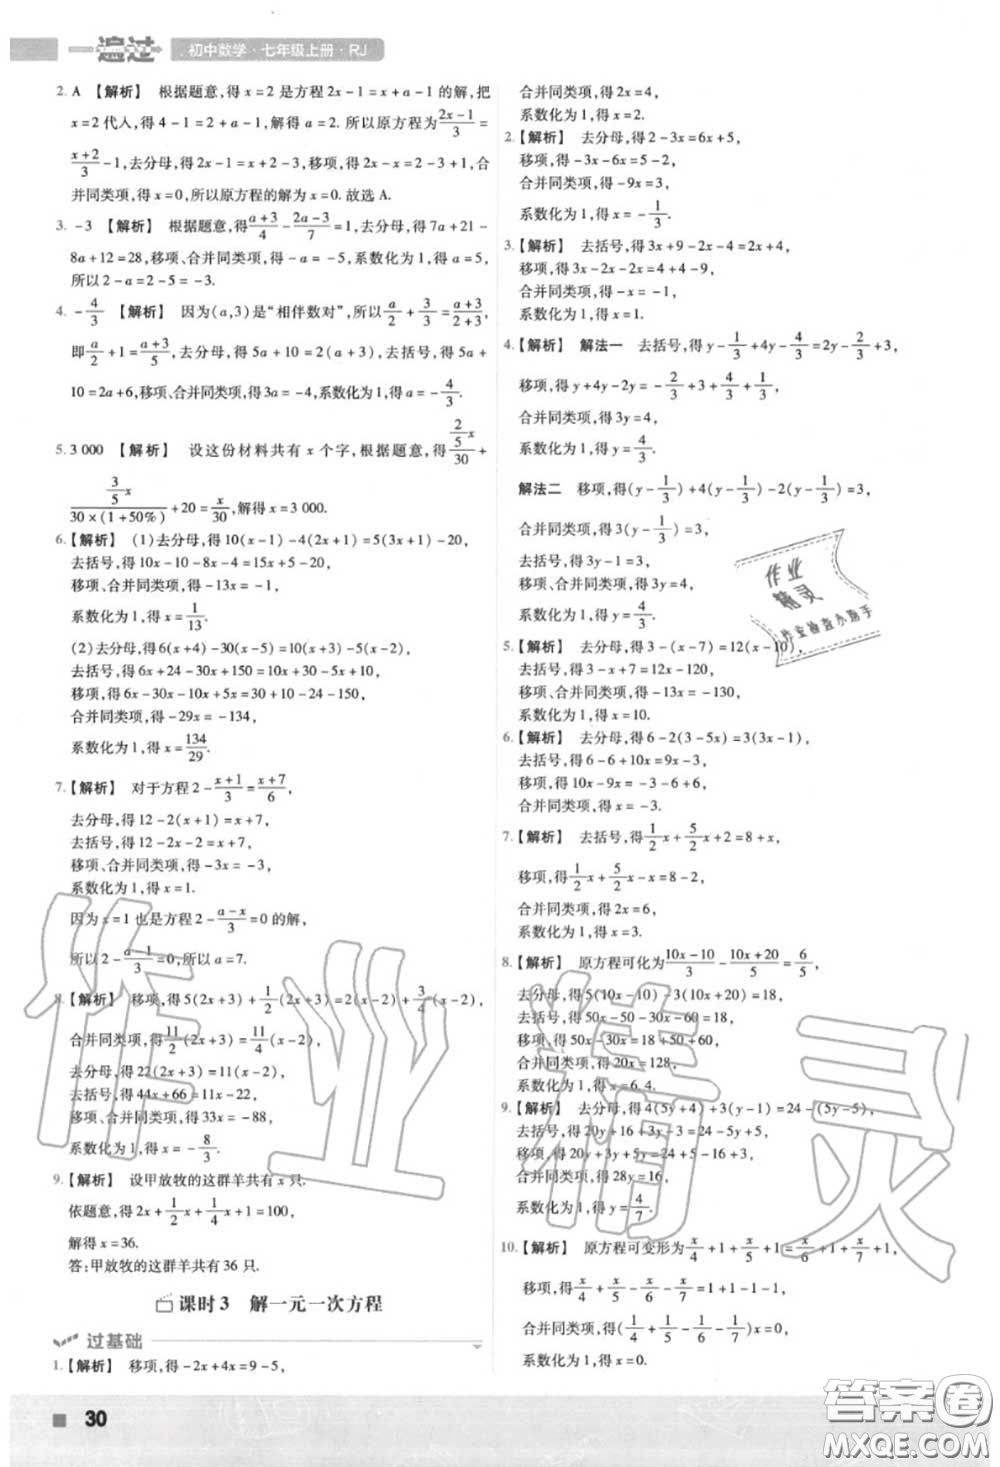 一遍过 初中数学·七年级上册·RJ
2. A 【解析】 根据题意,得 x=2 是方程 2x-1=x+a-1 的解,把
x=2 代入,得 4-1=2+a-1,解得 a=2. 所以原方程为 (2x-1)/3 =
(x+2)/3 -1,去分母,得 2x-1=x+2-3,移项,得 2x-x=2-3+1,合
并同类项,得 x=0,所以原方程的解为 x=0. 故选 A.
3. -3 【解析】 根据题意,得 (a+3)/4 - (2a-3)/7 =1,去分母,得 7a+21-
8a+12=28,移项、合并同类项,得 -a=-5,系数化为 1,得 a=5.
所以 2-a=2-5=-3.
4. -4/3 【解析】 因为(a,3)是“相伴数对”,所以 a/2 + 3/3 = (a+3)/(2+3),
即 a/2 +1= (a+3)/5,去分母,得 5a+10=2(a+3),去括号,得 5a
+10=2a+6,移项、合并同类项,得 3a=-4,系数化为 1,得 a=-4/3.
5. 3 000 【解析】 设这份材料共有 x 个字,根据题意,得 (2/5 x)/30 +
(3/5 x)/(30×(1+50%)) +20= x/30,解得 x=3 000.
6. 【解析】 (1)去分母,得 10(x-1)-4(2x+1)=5(x-1)-20,
去括号,得 10x-10-8x-4=5x-5-20,
移项、合并同类项,得 -13x=-1,
系数化为 1,得 x=1/13.
(2)去分母,得 6(x+4)-30(x-5)=10(x+3)-15(x-2),
去括号,得 6x+24-30x+150=10x+30-15x+30,
移项,得 6x-30x-10x+15x=30+30-24-150,
合并同类项,得
系数化为 1,得 x=134/29.
7. 【解析】 对于方程 2- (x+1)/3 = (x+7)/6,
去分母,得 12-2(x+1)=x+7,
去括号,得 12-2x-2=x+7,
移项、合并同类项,得 -3x=-3,
系数化为 1,得 x=1.
因为 x=1 也是方程 2- (a-x)/3 =0 的解,
所以 2- (a-1)/3 =0,所以 a=7.
8. 【解析】 移项,得 5(2x+3)+ 1/2 (2x+3)= (x-2)+ 3/4 (x-2),
合并同类项,得 11/2 (2x+3)= 11/4 (x-2),
去分母,得 22(2x+3)=11(x-2),
去括号,得 44x+66=11x-22,
移项、合并同类项,得 33x=-88,
系数化为 1,得 x=-8/3.
9. 【解析】 设甲放牧的这群羊共有 x 只.
依题意,得 2x+ 1/2 x+ 1/4 x+1=100,
解得 x=36.
答:甲放牧的这群羊共有 36 只.
课时 3 解一元一次方程
过基础
1. 【解析】 移项,得 -2x+4x=9-5,
合并同类项,得 2x=4,
系数化为 1,得 x=2.
2. 【解析】 去分母,得 2-3x=6x+5,
移项,得 -3x-6x=5-2,
合并同类项,得 -9x=3,
系数化为 1,得 x=-1/3.
3. 【解析】 去括号,得 3x+9-2x-4=2x+4,
移项,得 3x-2x-2x=4+4-9,
合并同类项,得 -x=-1,
系数化为 1,得 x=1.
4. 【解析】 解法一 去括号,得 y- 1/3 +4y- 4/3 =2y- 2/3 +3,
移项,得 y+4y-2y=- 2/3 +3+ 4/3 + 1/3,
合并同类项,得 3y=4,
系数化为 1,得 y=4/3.
解法二 移项,得 (y- 1/3)+4(y- 1/3)-2(y- 1/3)=3,
合并同类项,得 3(y- 1/3)=3,
去括号,得 3y-1=3,
移项、合并同类项,得 3y=4,
系数化为 1,得 y=4/3.
5. 【解析】 去分母,得 3-(x-7)=12(x-10),
去括号,得 3-x+7=12x-120,
移项、合并同类项,得 -13x=-130,
系数化为 1,得 x=10.
6. 【解析】 去分母,得 6-2(3-5x)=3(3x-1),
去括号,得 6-6+10x=9x-3,
移项,得 10x-9x=-3-6+6,
合并同类项,得 x=-3.
7. 【解析】 去括号,得 1/2 x+ 5/2 x+2=8+x,
移项,得 1/2 x+ 5/2 x-x=8-2,
合并同类项,得 2x=6,
系数化为 1,得 x=3.
8. 【解析】 原方程可化为 (10x-10)/3 - (10x+20)/5 = 6/5,
去分母,得 5(10x-10)-3(10x+20)=18,
去括号,得 50x-50-30x-60=18,
移项,得 50x-30x=18+50+60,
合并同类项,得 20x=128,
系数化为 1,得 x=6.4.
9. 【解析】 去分母,得 4(5y+4)+3(y-1)=24-(5y-5),
去括号,得 20y+16+3y-3=24-5y+5,
移项,得 20y+3y+5y=24+5-16+3,
合并同类项,得 28y=16,
系数化为 1,得 y=4/7.
10. 【解析】 原方程可变形为 x/4 +1+ x/5 +1= x/6 +1+ x/7 +1,
移项,得 x/4 + x/5 - x/6 - x/7 =1+1-1-1,
合并同类项,得 (1/4 + 1/5 - 1/6 - 1/7)x=0,
系数化为 1,得 x=0.
作业
精灵
作业检查小助手
作业精灵
30
答案圈
MXQE.COM